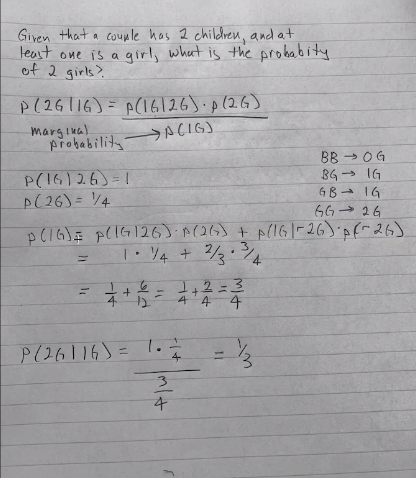 Given that a couple has 2 children, and at
least one is a girl, what is the probabity
of 2 girls?
P(2G|1G) = P(1G|2G) · P(2G)
marginal probability → P(1G)
BB → 0G
BG → 1G
GB → 1G
GG → 2G
P(1G|2G) = 1
P(2G) = 1/4
P(1G) = P(1G|2G) · P(2G) + P(1G|~2G) · P(~2G)
= 1 · 1/4 + 2/3 · 3/4
= 1/4 + 6/12 = 1/4 + 2/4 = 3/4
P(2G|1G) = 1 · 1/4 = 1/3
3/4